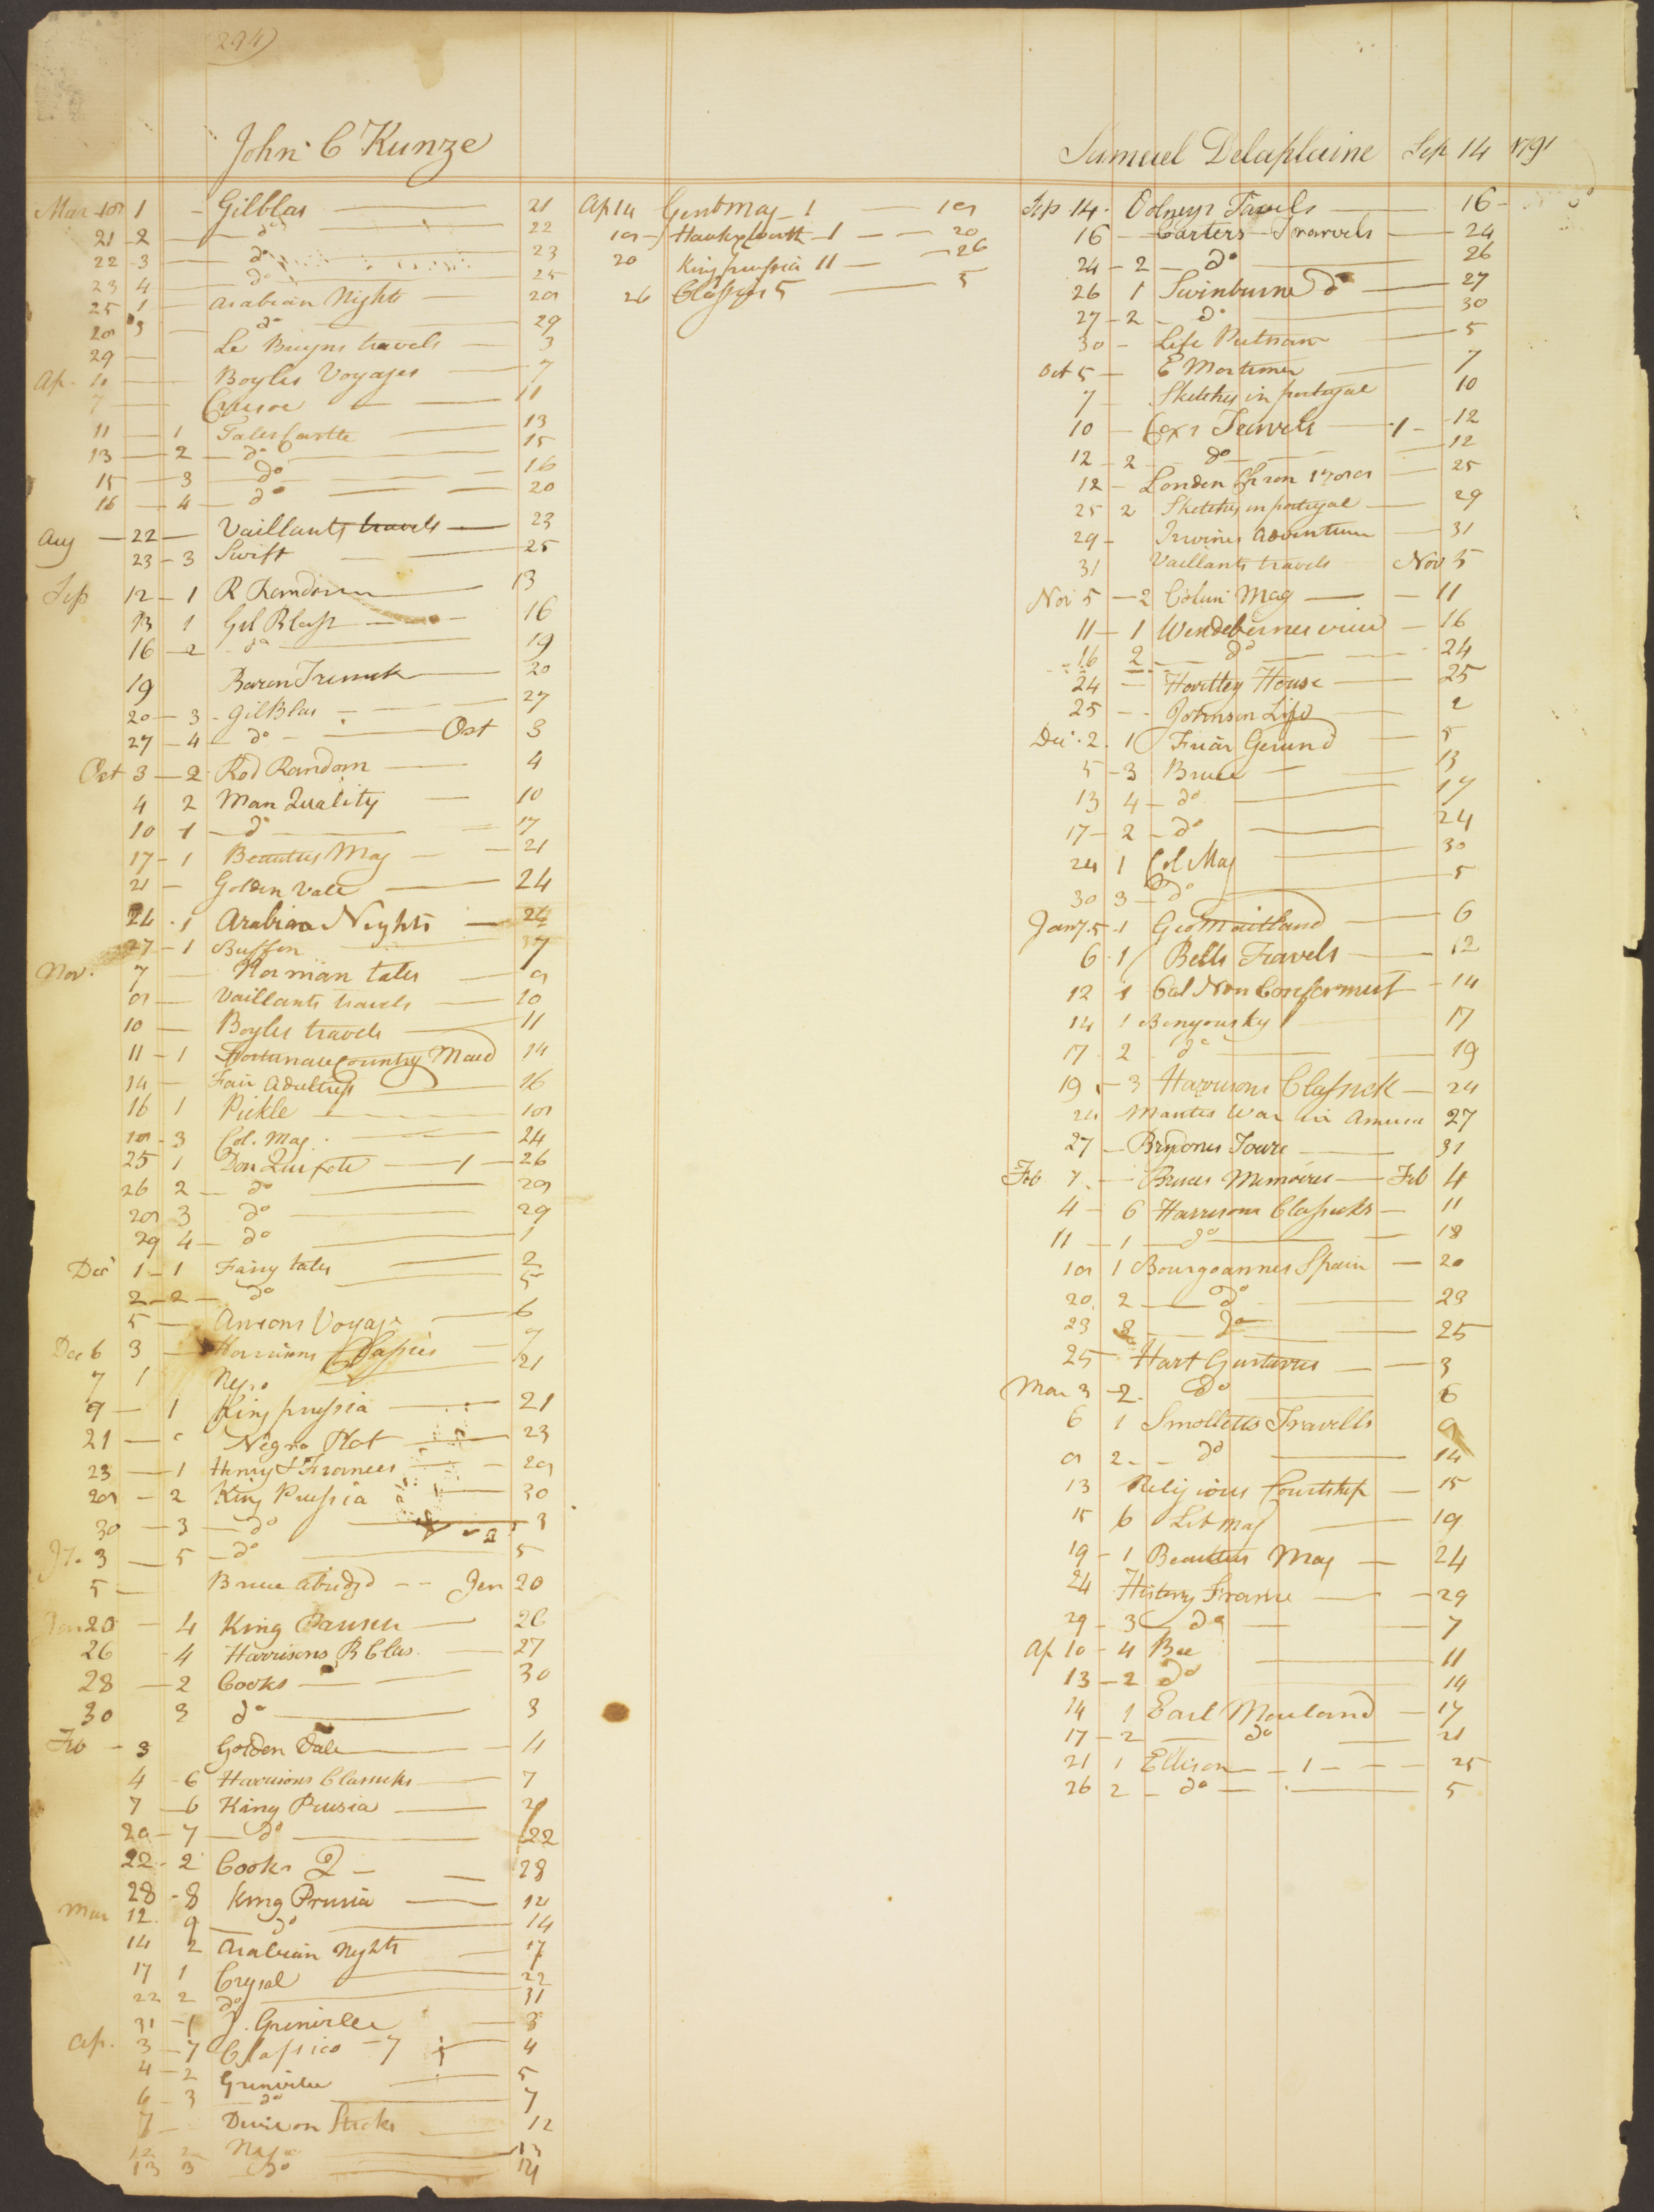 294)
John C Kunze
Mar 18 1 - Gilblas 21
21 - 2 do 22
22 - 3 do 23
23 4 do 25
25 1 Arabian Nights 28
28 3 do 29
29 Le Bruyns travels 3
Ap. Boyles Voyages 7
7 Crusoe 11
11 1 Tales Castle 13
13 2 do 15
15 3 do 16
16 4 do 20
Aug 22 Vaillants travels 23
23 - 3 Swift 25
Sep 12 - 1 R Random 13
13 1 Gil Blass 16
16 - 2 do 19
19 Baron Trenck 20
20 - 3 - Gil Blas 27
27 - 4 do Oct 3
Oct 3 - 2 Rod Random 4
4 2 Man Quality 10
10 1 do 17
17 - 1 Beauties Mag 21
21 - Golden Vale 24
24 1 Arabian Nights 26
27 - 1 Buffon 7
Nov. 7 Norman tales 8
8 Vaillants travels 10
10 Boyles travels 11
11 - 1 Fortunate Country Maid 14
14 Fair Adultress 16
16 1 Pickle 18
18 - 3 Col. Mag. 24
25 1 Don Quixote 1 26
26 2 do 28
28 3 do 29
29 4 do 1
Dec 1 - 1 Fairy tales 2
2 - 2 do 5
5 Ansons Voyage 6
Dec 6 3 Harrisons Classics 7
7 1 Negro 21
9 1 King prussia 21
21 Negro Plot 23
23 1 Henry & Frances 28
28 - 2 King Prussia 30
30 - 3 do 3
3 5 do 5
5 Bruce abridgd Jan 20
Jan 20 4 King Prussia 26
26 4 Harrisons B Clas. 27
28 2 Cooks 30
30 3 do 3
Feb 3 Golden Vale 4
4 6 Harrisons Classicks 7
7 6 King Prusia
20 - 7 do 22
22 - 2 Cooks 2 28
28 - 8 King Prusia 12
Mar 12. 9 do 14
14 2 Arabian Nights 17
17 1 Crysal 22
22 2 do 31
31 - 1 J. Grenville 3
Ap. 3 - 7 Classics - 7 4
4 - 2 Grenville 5
6 3 do 7
7 12
12 2 13
13 3 do 14
Ap 14 Gentmag 1 18
18 Hawkesworth 1 20
20 King prussia 11 26
26 Classics 5 5
Samuel Delaplaine Sep 14 1791
Sep 14. Volneys Travels 16
16 Carters Travels 24
24 - 2 do 26
26 1 Swinburne do 27
27 - 2 do 30
30 - Life Putnam 5
Oct 5 E Mortimer 7
7 Sketches in portugal 10
10 Coxs Travels 1 12
12 2 do 12
12 London Chron 1788 25
25 2 Sketches in portugal 29
29 Irwines Adventures 31
31 Vaillants travels Nov 5
Nov 5 2 Colum Mag 11
11 - 1 Wendebornes view 16
16 2 do 24
24 Hartley House 25
25 Johnson Life 2
Dec. 2. 1 Friar Gerund 5
5 - 3 Bruce 13
13 4 do 17
17 - 2 do 24
24 1 Col Mag 30
30 3 do 5
Jany. 5 1 Geo Maitland 6
6 1 Bells Travels 12
12 1 Cal Non Conformist 14
14 1 Benyousky 17
17 2 do 19
19 3 Harrisons Classick 24
24 Mantes War in America 27
27 Brydones Toure 31
Feb 1 Bruces Memoires Feb 4
4 6 Harrisons Classicks 11
11 1 do 18
18 1 Bourgoannes Spain 20
20. 2 do 23
23 do 25
25 Hart Gustavus 3
Mar 3 2. do 6
6 1 Smolletts Travells 9
9 2 do 14
13 Religious Courtship 15
15 6 Litmag 19
19 - 1 Beauties Mag 24
24 History France 29
29 - 3 do 7
Ap 10 - 4 Bee 11
13 - 2 do 14
14 1 Earl Moreland 17
17 - 2 do 21
21 1 Ellison 1 25
26 2 do 5